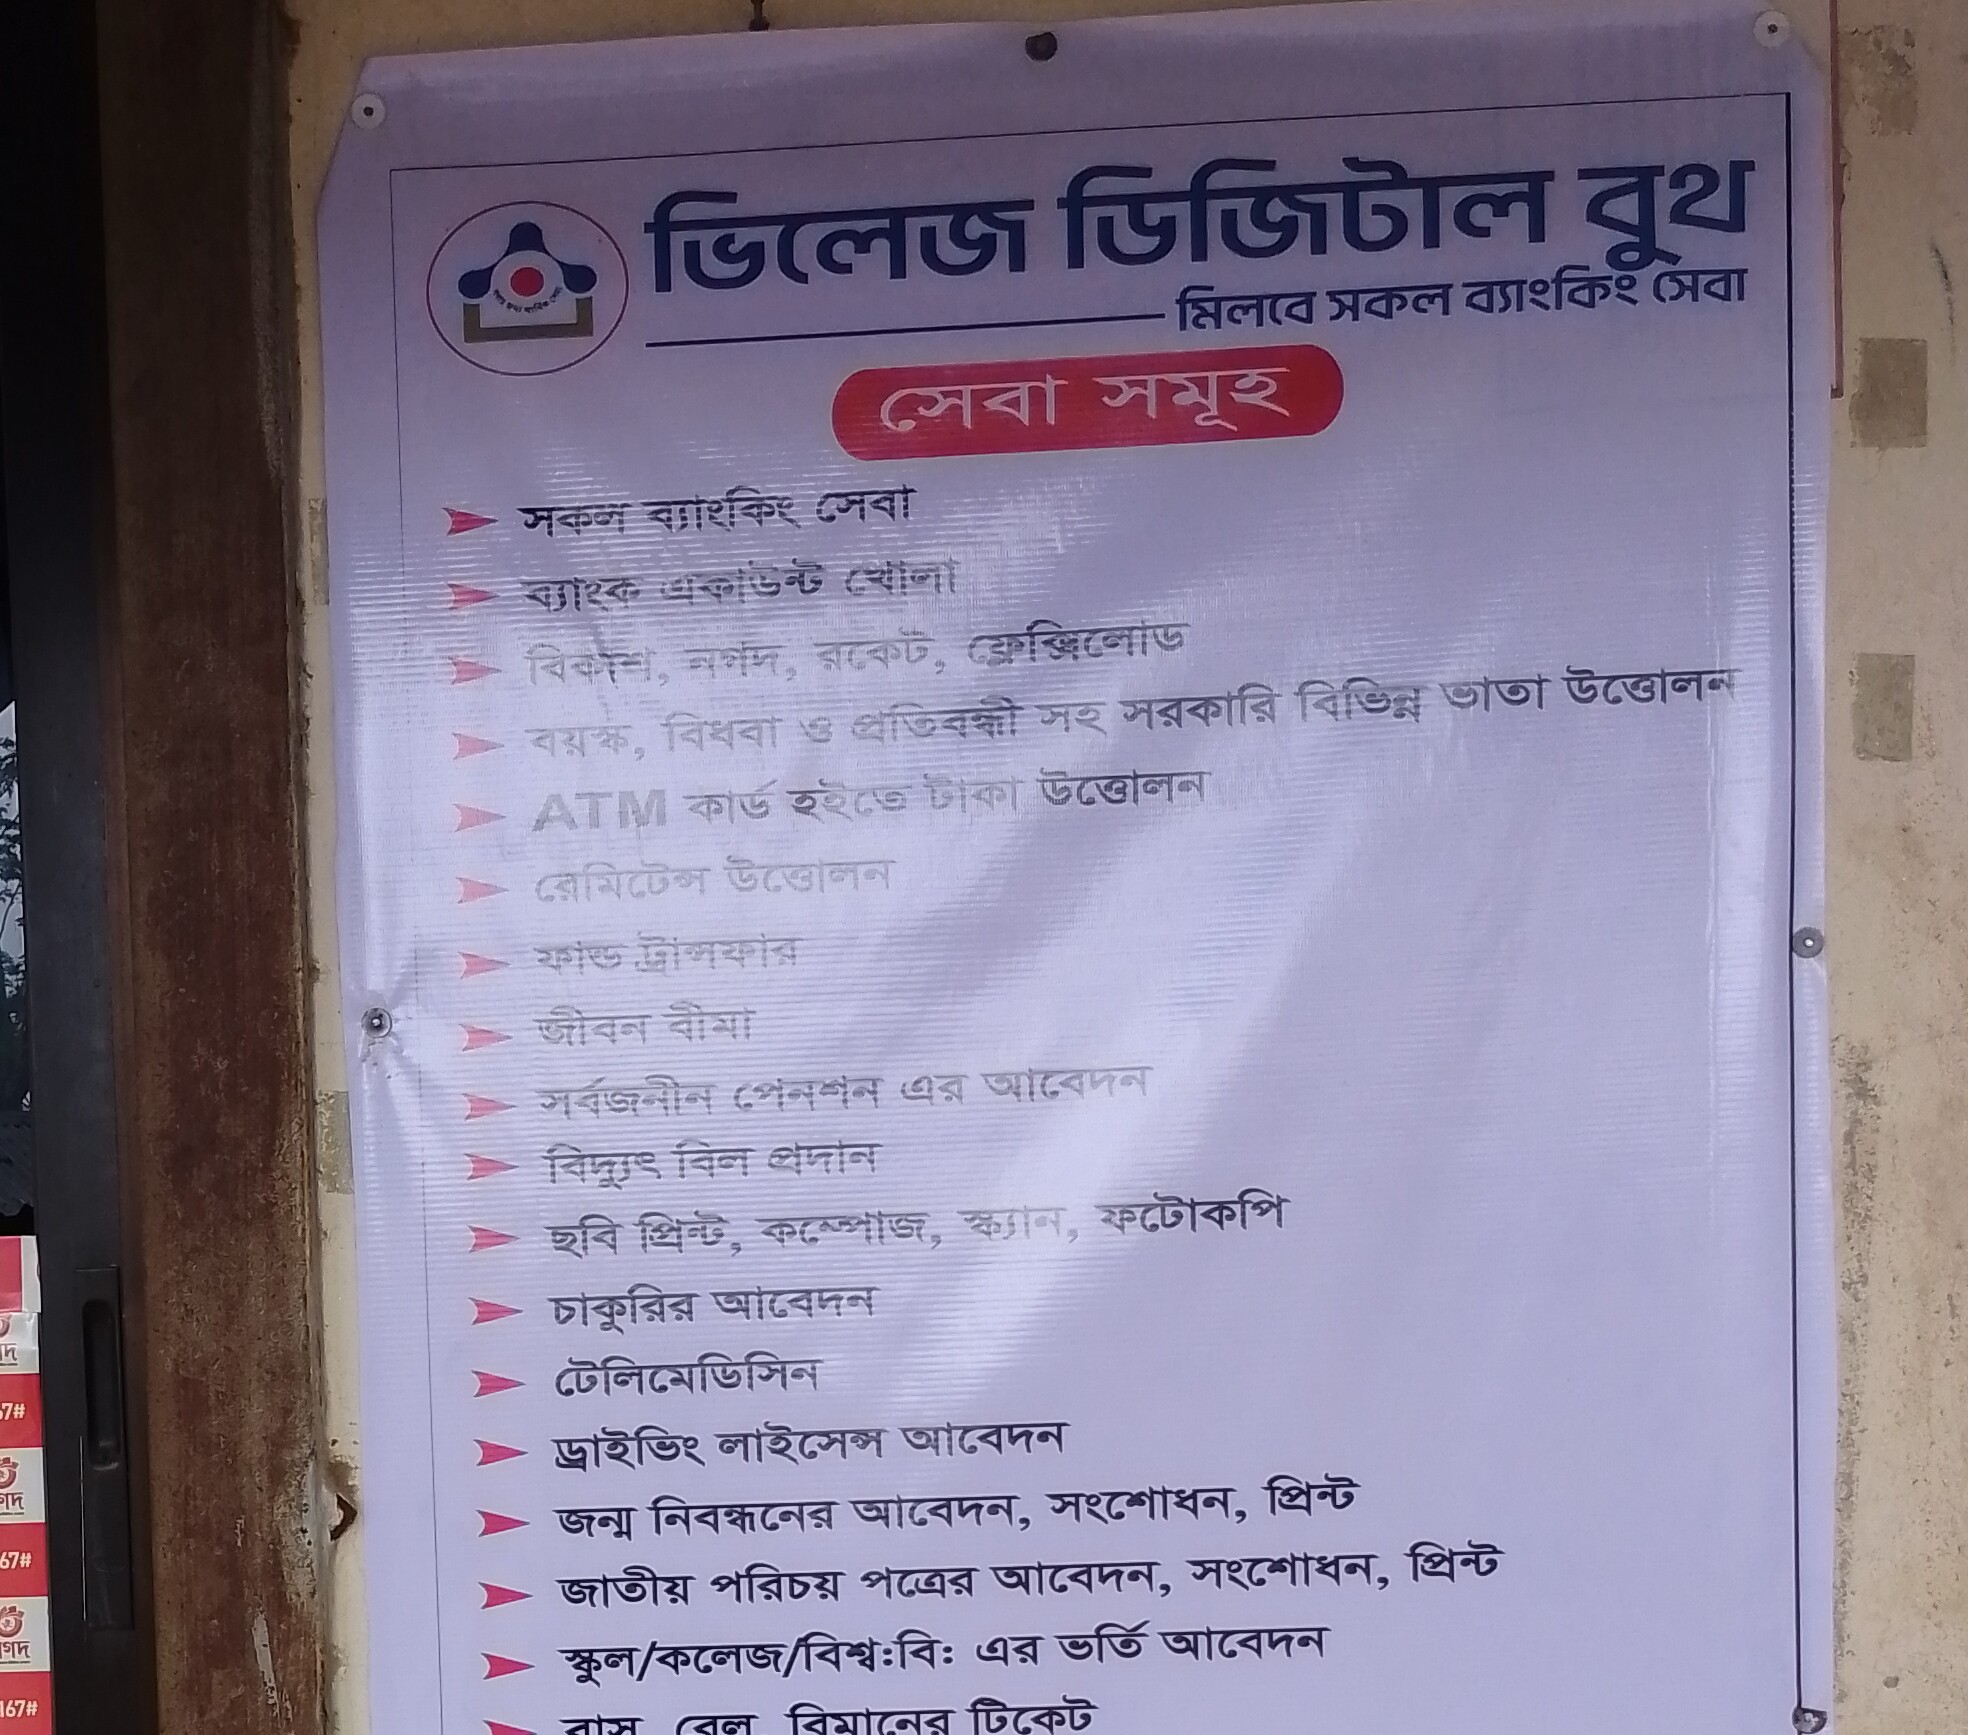 ভিলেজ ডিজিটাল বুথ
মিলবে সকল ব্যাংকিং সেবা
সেবা সমূহ
সকল ব্যাংকিং সেবা
ব্যাংক একাউন্ট খোলা
বিকাশ, নগদ, রকেট, ফ্লেক্সিলোড
বয়স্ক, বিধবা ও প্রতিবন্ধী সহ সরকারি বিভিন্ন ভাতা উত্তোলন
ATM কার্ড হইতে টাকা উত্তোলন
রেমিটেন্স উত্তোলন
ফান্ড ট্রান্সফার
জীবন বীমা
সর্বজনীন পেনশন এর আবেদন
বিদ্যুৎ বিল প্রদান
ছবি প্রিন্ট, কম্পোজ, স্ক্যান, ফটোকপি
চাকুরির আবেদন
টেলিমেডিসিন
ড্রাইভিং লাইসেন্স আবেদন
জন্ম নিবন্ধনের আবেদন, সংশোধন, প্রিন্ট
জাতীয় পরিচয় পত্রের আবেদন, সংশোধন, প্রিন্ট
স্কুল/কলেজ/বিশ্ব:বি: এর ভর্তি আবেদন
বাস, রেল, বিমানের টিকেট
67#
167#